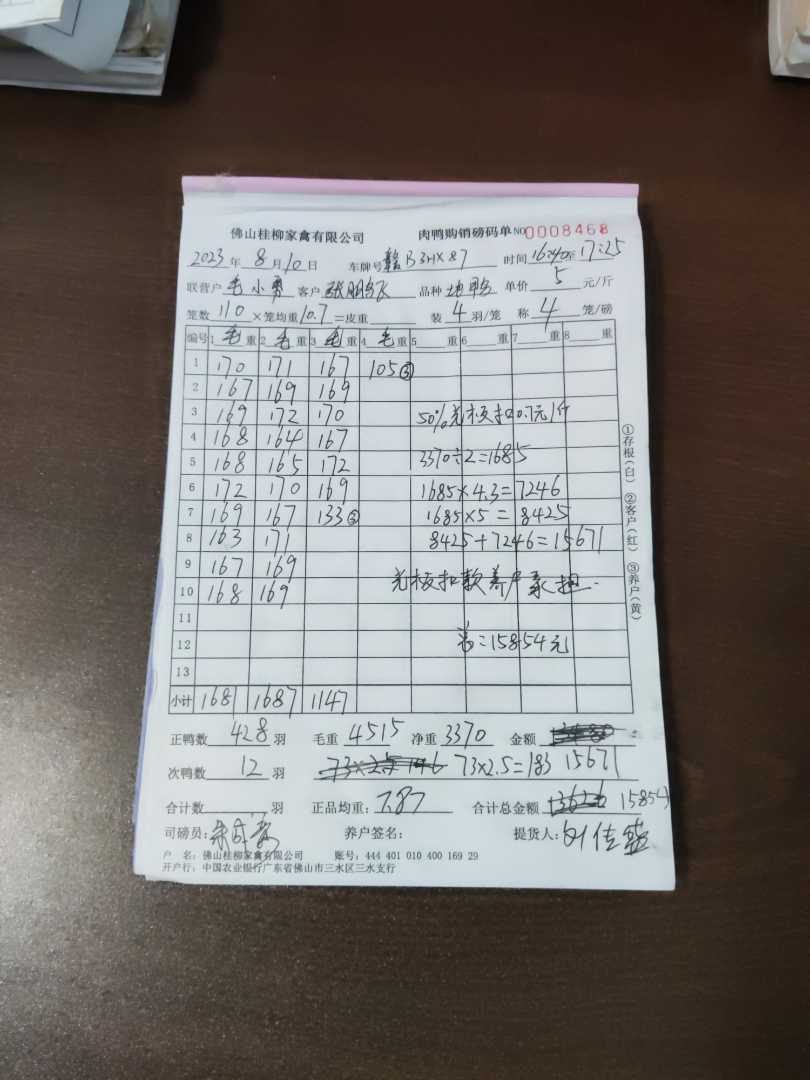 佛山桂柳家禽有限公司 肉鸭购销磅码单 NO 0008468
2023年 8月10日 车牌号 赣B3HX87 时间 16:40至17:25
联营户 毛小勇 客户 张朋飞 品种 地鸭 单价 5 元/斤
笼数 110 ×笼均重 10.7 =皮重 装 4 羽/笼 称 4 笼/磅
编号 1 毛 重 2 毛 重 3 毛 重 4 毛 重 5 重 6 重 7 重 8 重
1 170 171 167 105③
2 167 169 169
3 169 172 170 50%光板扣0.7元/斤
4 168 164 167
5 168 165 172 3370÷2=1685
6 172 170 169 1685×4.3=7246
7 169 167 133③ 1685×5=8425
8 163 171 8425+7246=15671
9 167 169
10 168 169 光板扣款养户承担.
11
12 总=15854元
13
小计 1681 1687 1147
①存根(白) ②客户(红) ③养户(黄)
正鸭数 428 羽 毛重 4515 净重 3370 金额
次鸭数 12 羽 73×2.5 146 73×2.5=183 15671
合计数 羽 正品均重: 7.87 合计总金额 15854
司磅员: 养户签名: 提货人: 刘佳盛
户 名: 佛山桂柳家禽有限公司 账号: 444 401 010 400 169 29
开户行: 中国农业银行广东省佛山市三水区三水支行